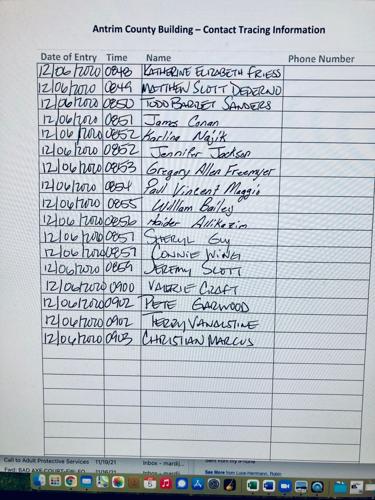 Antrim County Building – Contact Tracing Information
Date of Entry Time Name Phone Number
12/06/2020 0848 KATHERINE ELIZABETH FRIESS
12/06/2020 0849 MATTHEW SCOTT DEPERNO
12/06/2020 0850 TODD BARRET SANDERS
12/06/2020 0851 James Conan
12/06/2020 0852 Karline Najik
12/06/2020 0852 Jennifer Jackson
12/06/2020 0853 Gregory Allen Freemyer
12/06/2020 0854 Paul Vincent Maggio
12/06/2020 0855 William Bailey
12/06/2020 0856 Haider Allikazim
12/06/2020 0857 SHERYL Guy
12/06/2020 0857 CONNIE WING
12/06/2020 0859 JEREMY SCOTT
12/06/2020 0900 VALERIE CRAFT
12/06/2020 0902 PETE GARWOOD
12/06/2020 0902 TERRY VANALSTINE
12/06/2020 0903 CHRISTIAN MARCUS
Call to Adult Protective Services 11/19/21 Inbox - mardij...
Fwd: BAD AXE COURT-
See More from